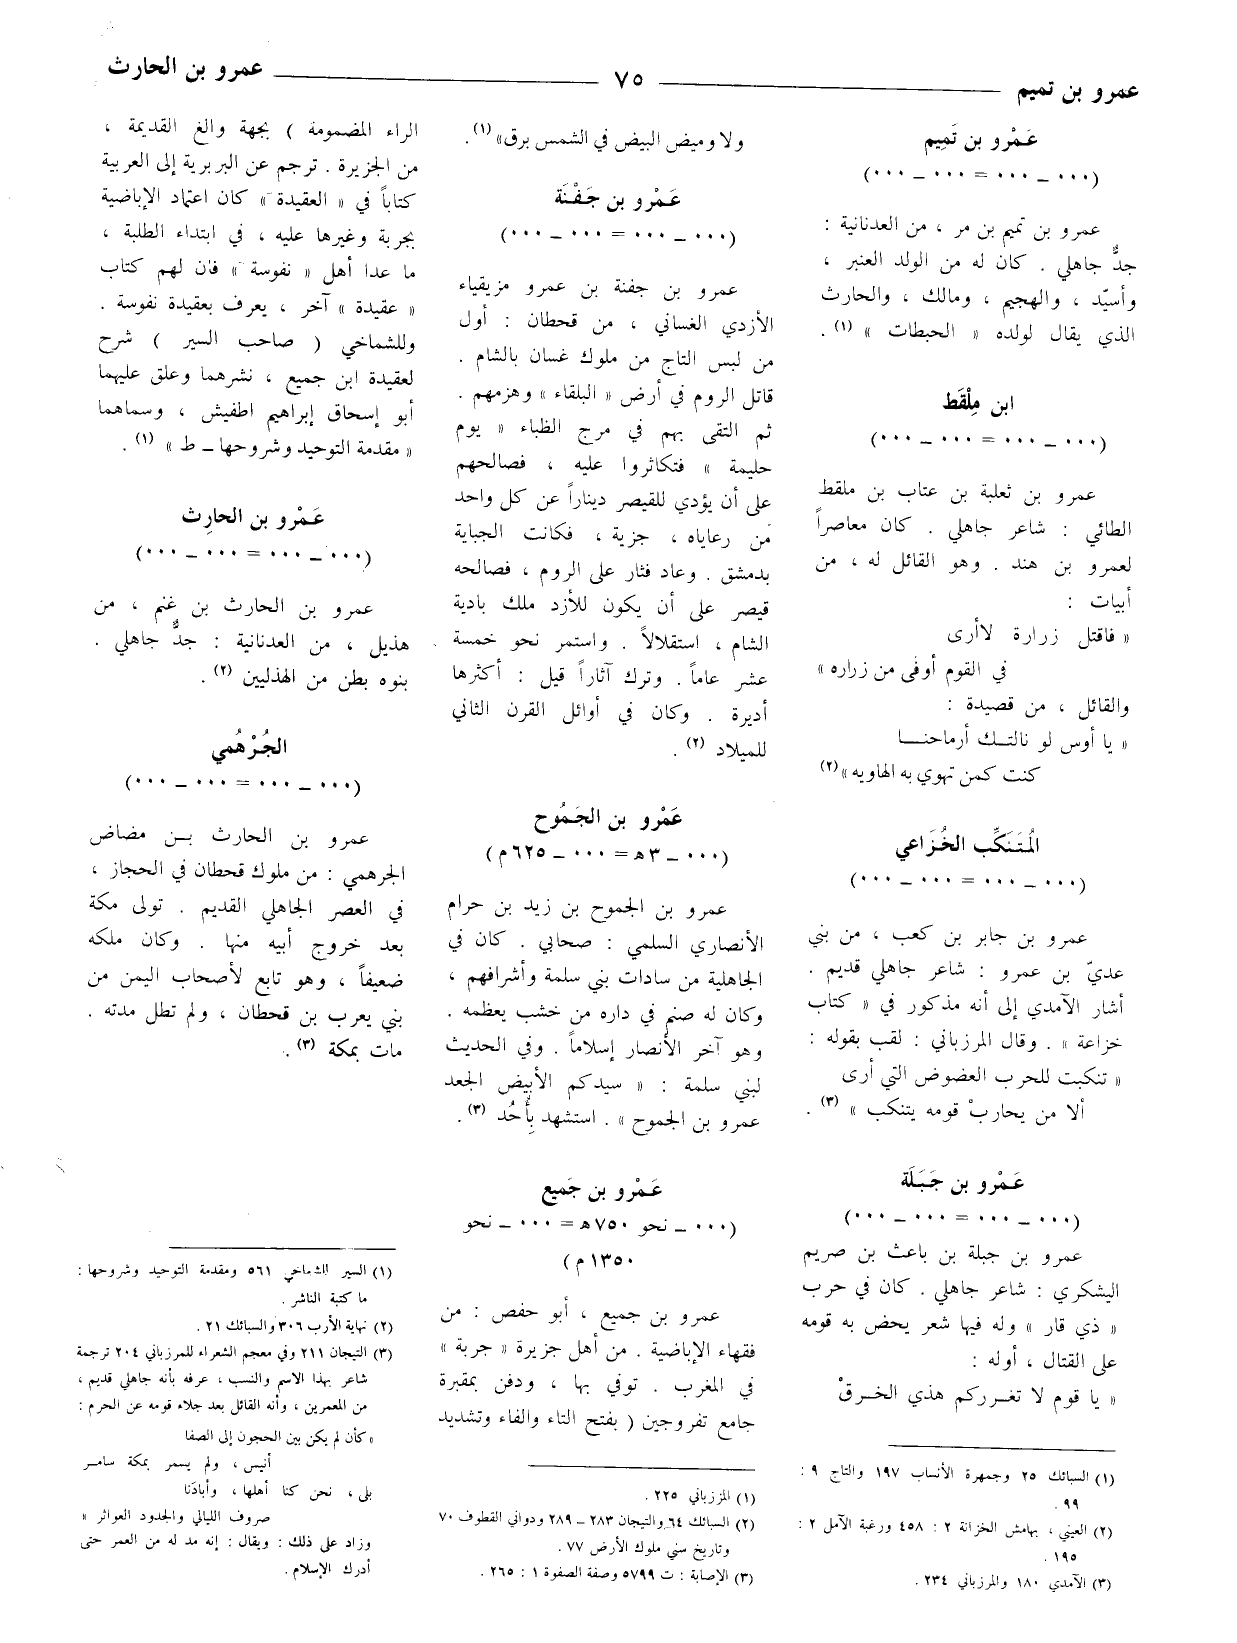 عمرو بن تميم ٧٥ عمرو بن الحارث
عَمْرو بن تَمِيم
(٠٠٠ ــ ٠٠٠ = ٠٠٠ ــ ٠٠٠)
عمرو بن تميم بن مر ، من العدنانية :
جدٌّ جاهلي . كان له من الولد العنبر ،
وأسيّد ، والهجيم ، ومالك ، والحارث
الذي يقال لولده « الحبطات » (١) .
ابن مِلْقَط
(٠٠٠ ــ ٠٠٠ = ٠٠٠ ــ ٠٠٠)
عمرو بن ثعلبة بن عتاب بن ملقط
الطائي : شاعر جاهلي . كان معاصراً
لعمرو بن هند . وهو القائل له ، من
أبيات :
« فاقتل زرارة لاأرى
في القوم أوفى من زراره »
والقائل ، من قصيدة :
« يا أوس لو نالتــك أرماحنــا
كنت كمن تهوي به الهاويه » (٢)
المُتَنَكِّب الخُزَاعي
(٠٠٠ ــ ٠٠٠ = ٠٠٠ ــ ٠٠٠)
عمرو بن جابر بن كعب ، من بني
عديّ بن عمرو : شاعر جاهلي قديم .
أشار الآمدي إلى أنه مذكور في « كتاب
خزاعة » . وقال المرزباني : لقب بقوله :
« تنكبت للحرب العضوض التي أرى
ألا من يحاربْ قومه يتنكب » (٣) .
عَمْرو بن جَبَلَة
(٠٠٠ ــ ٠٠٠ = ٠٠٠ ــ ٠٠٠)
عمرو بن جبلة بن باعث بن صريم
اليشكري : شاعر جاهلي . كان في حرب
« ذي قار » وله فيها شعر يحض به قومه
على القتال ، أوله :
« يا قوم لا تغــرركم هذي الخرقْ
(١) السبائك ٢٥ وجمهرة الأنساب ١٩٧ والتاج ٩ :
٩٩ .
(٢) العيني ، بهامش الخزانة ٢ : ٤٥٨ ورغبة الآمل ٢ :
١٩٥ .
(٣) الآمدي ١٨٠ والمرزباني ٢٣٤ .
ولا وميض البيض في الشمس برق » (١) .
عَمْرو بن جَفْنَة
(٠٠٠ ــ ٠٠٠ = ٠٠٠ ــ ٠٠٠)
عمرو بن جفنة بن عمرو مزيقياء
الأزدي الغساني ، من قحطان : أول
من لبس التاج من ملوك غسان بالشام .
قاتل الروم في أرض « البلقاء » وهزمهم .
ثم التقى بهم في مرج الظباء « يوم
حليمة » فتكاثروا عليه ، فصالحهم
على أن يؤدي للقيصر ديناراً عن كل واحد
من رعاياه ، جزية ، فكانت الجباية
بدمشق . وعاد فثار على الروم ، فصالحه
قيصر على أن يكون للأزد ملك بادية
الشام ، استقلالاً . واستمر نحو خمسة
عشر عاماً . وترك آثاراً قيل : أكثرها
أديرة . وكان في أوائل القرن الثاني
للميلاد (٢) .
عَمْرو بن الجَمُوح
(٠٠٠ ــ ٣ هـ = ٠٠٠ ــ ٦٢٥ م)
عمرو بن الجموح بن زيد بن حرام
الأنصاري السلمي : صحابي . كان في
الجاهلية من سادات بني سلمة وأشرافهم ،
وكان له صنم في داره من خشب يعظمه .
وهو آخر الأنصار إسلاماً . وفي الحديث
لبني سلمة : « سيدكم الأبيض الجعد
عمرو بن الجموح » . استشهد بِأُحُد (٣) .
عَمْرو بن جَميع
(٠٠٠ ــ نحو ٧٥٠ هـ = ٠٠٠ ــ نحو
١٣٥٠ م)
عمرو بن جميع ، أبو حفص : من
فقهاء الإباضية . من أهل جزيرة « جربة »
في المغرب . توفي بها ، ودفن بمقبرة
جامع تفروجين ( بفتح التاء والفاء وتشديد
(١) المرزباني ٢٢٥ .
(٢) السبائك ٦٤ والتيجان ٢٨٣ ــ ٢٨٩ ودواني القطوف ٧٠
وتاريخ سني ملوك الأرض ٧٧ .
(٣) الإصابة : ت ٥٧٩٩ وصفة الصفوة ١ : ٢٦٥ .
الراء المضمومة ) بجهة والغ القديمة ،
من الجزيرة . ترجم عن البربرية إلى العربية
كتاباً في « العقيدة » كان اعتماد الإباضية
بجربة وغيرها عليه ، في ابتداء الطلبة ،
ما عدا أهل « نفوسة » فان لهم كتاب
« عقيدة » آخر ، يعرف بعقيدة نفوسة .
وللشماخي ( صاحب السير ) شرح
لعقيدة ابن جميع ، نشرهما وعلق عليهما
أبو إسحاق إبراهيم اطفيش ، وسماهما
« مقدمة التوحيد وشروحها ــ ط » (١) .
عَمْرو بن الحارِث
(٠٠٠ ــ ٠٠٠ = ٠٠٠ ــ ٠٠٠)
عمرو بن الحارث بن غنم ، من
هذيل ، من العدنانية : جدٌّ جاهلي .
بنوه بطن من الهذليين (٢) .
الجُرْهُمي
(٠٠٠ ــ ٠٠٠ = ٠٠٠ ــ ٠٠٠)
عمرو بن الحارث بــن مضاض
الجرهمي : من ملوك قحطان في الحجاز ،
في العصر الجاهلي القديم . تولى مكة
بعد خروج أبيه منها . وكان ملكه
ضعيفاً ، وهو تابع لأصحاب اليمن من
بني يعرب بن قحطان ، ولم تطل مدته .
مات بمكة (٣) .
(١) السير للشماخي ٥٦١ ومقدمة التوحيد وشروحها :
ما كتبة الناشر .
(٢) نهاية الأرب ٣٠٦ والسبائك ٢١ .
(٣) التيجان ٢١١ وفي معجم الشعراء للمرزباني ٢٠٤ ترجمة
شاعر بهذا الاسم والنسب ، عرفه بأنه جاهلي قديم ،
من المعمرين ، وأنه القائل بعد جلاء قومه عن الحرم :
« كأن لم يكن بين الحجون إلى الصفا
أنيس ، ولم يسمر بمكة سامــر
بلى ، نحن كنا أهلها ، وأبادَنا
صروف الليالي والجدود العواثر »
وزاد على ذلك : ويقال : إنه مد له من العمر حتى
أدرك الإسلام .